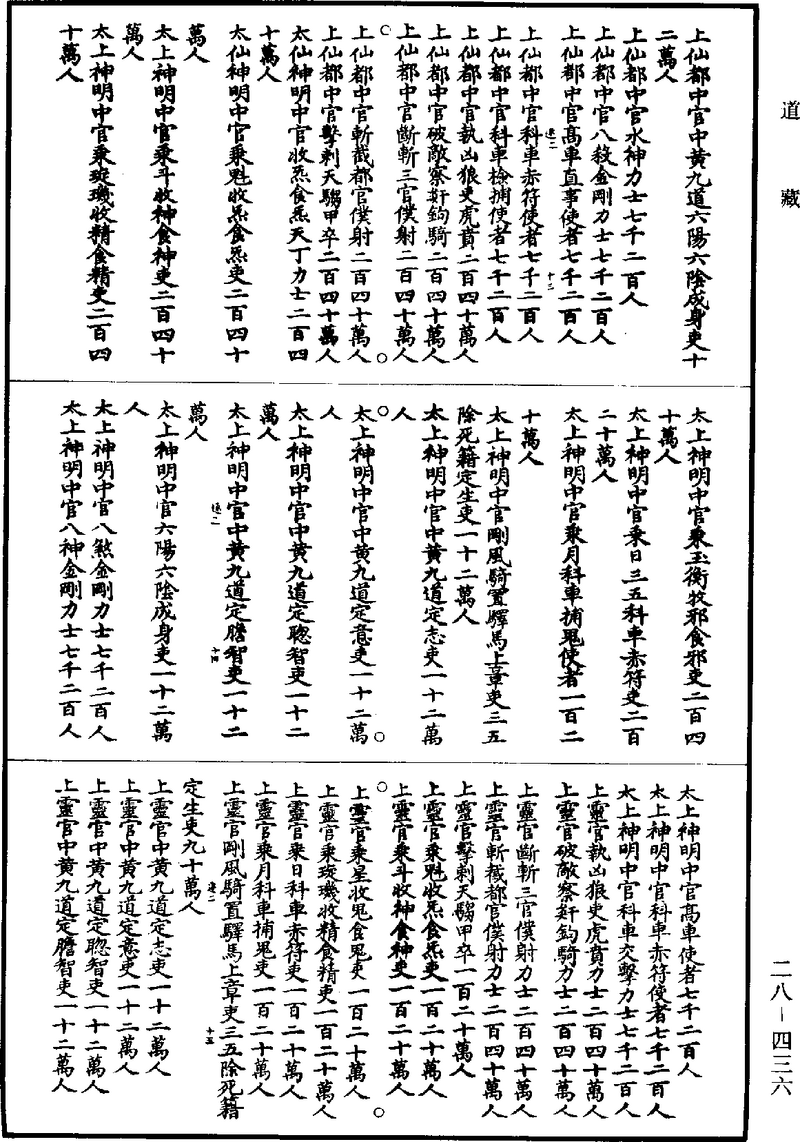 道藏
上仙都中官中黄九道六陽六陰成身吏十
二萬人
上仙都中官水神力士七千二百人
上仙都中官八殺金剛力士七千二百人
上仙都中官髙車直事使者七千二百人
上仙都中官科車赤符使者七千二百人
上仙都中官科車檢捕使者七千二百人
上仙都中官執凶狼吏虎賁二百四十萬人
上仙都中官破敵察奸鉤騎二百四十萬人
上仙都中官斷斬三官僕射二百四十萬人
上仙都中官斬截都官僕射二百四十萬人
上仙都中官擊刺天騶甲卒二百四十萬人
太仙神明中官收炁食炁天丁力士二百四
十萬人
太仙神明中官乘魁收炁食炁吏二百四十
萬人
太上神明中官乘斗收神食神吏二百四十
萬人
太上神明中官乘璇璣收精食精吏二百四
十萬人
太上神明中官乘玉衡收邪食邪吏二百四
十萬人
太上神明中官乘日三五科車赤符吏二百
二十萬人
太上神明中官乘月科車捕鬼使者一百二
十萬人
太上神明中官剛風騎置驛馬上章吏三五
除死籍定生吏一十二萬人
太上神明中官中黄九道定志吏一十二萬
人
太上神明中官中黄九道定意吏一十二萬
人
太上神明中官中黄九道定聰智吏一十二
萬人
太上神明中官中黄九道定膽智吏一十二
萬人
太上神明中官六陽六陰成身吏一十二萬
人
太上神明中官八煞金剛力士七千二百人
太上神明中官八神金剛力士七千二百人
太上神明中官髙車使者七千二百人
太上神明中官科車赤符使者七千二百人
太上神明中官科車交擊力士七千二百人
上靈官執凶狼吏虎賁力士二百四十萬人
上靈官破敵察奸鉤騎力士二百四十萬人
上靈官斷斬三官僕射力士二百四十萬人
上靈官斬截都官僕射力士二百四十萬人
上靈官擊刺天騶甲卒一百二十萬人
上靈官乘魁收炁食炁吏一百二十萬人
上靈官乘斗收神食神吏一百二十萬人
上靈官乘星收鬼食鬼吏一百二十萬人
上靈官乘璇璣收精食精吏一百二十萬人
上靈官乘日科車赤符吏一百二十萬人
上靈官乘月科車捕鬼吏一百二十萬人
上靈官剛風騎置驛馬上章吏三五除死籍
定生吏九十萬人
上靈官中黄九道定志吏一十二萬人
上靈官中黄九道定意吏一十二萬人
上靈官中黄九道定聰智吏一十二萬人
上靈官中黄九道定膽智吏一十二萬人
二八－四三六